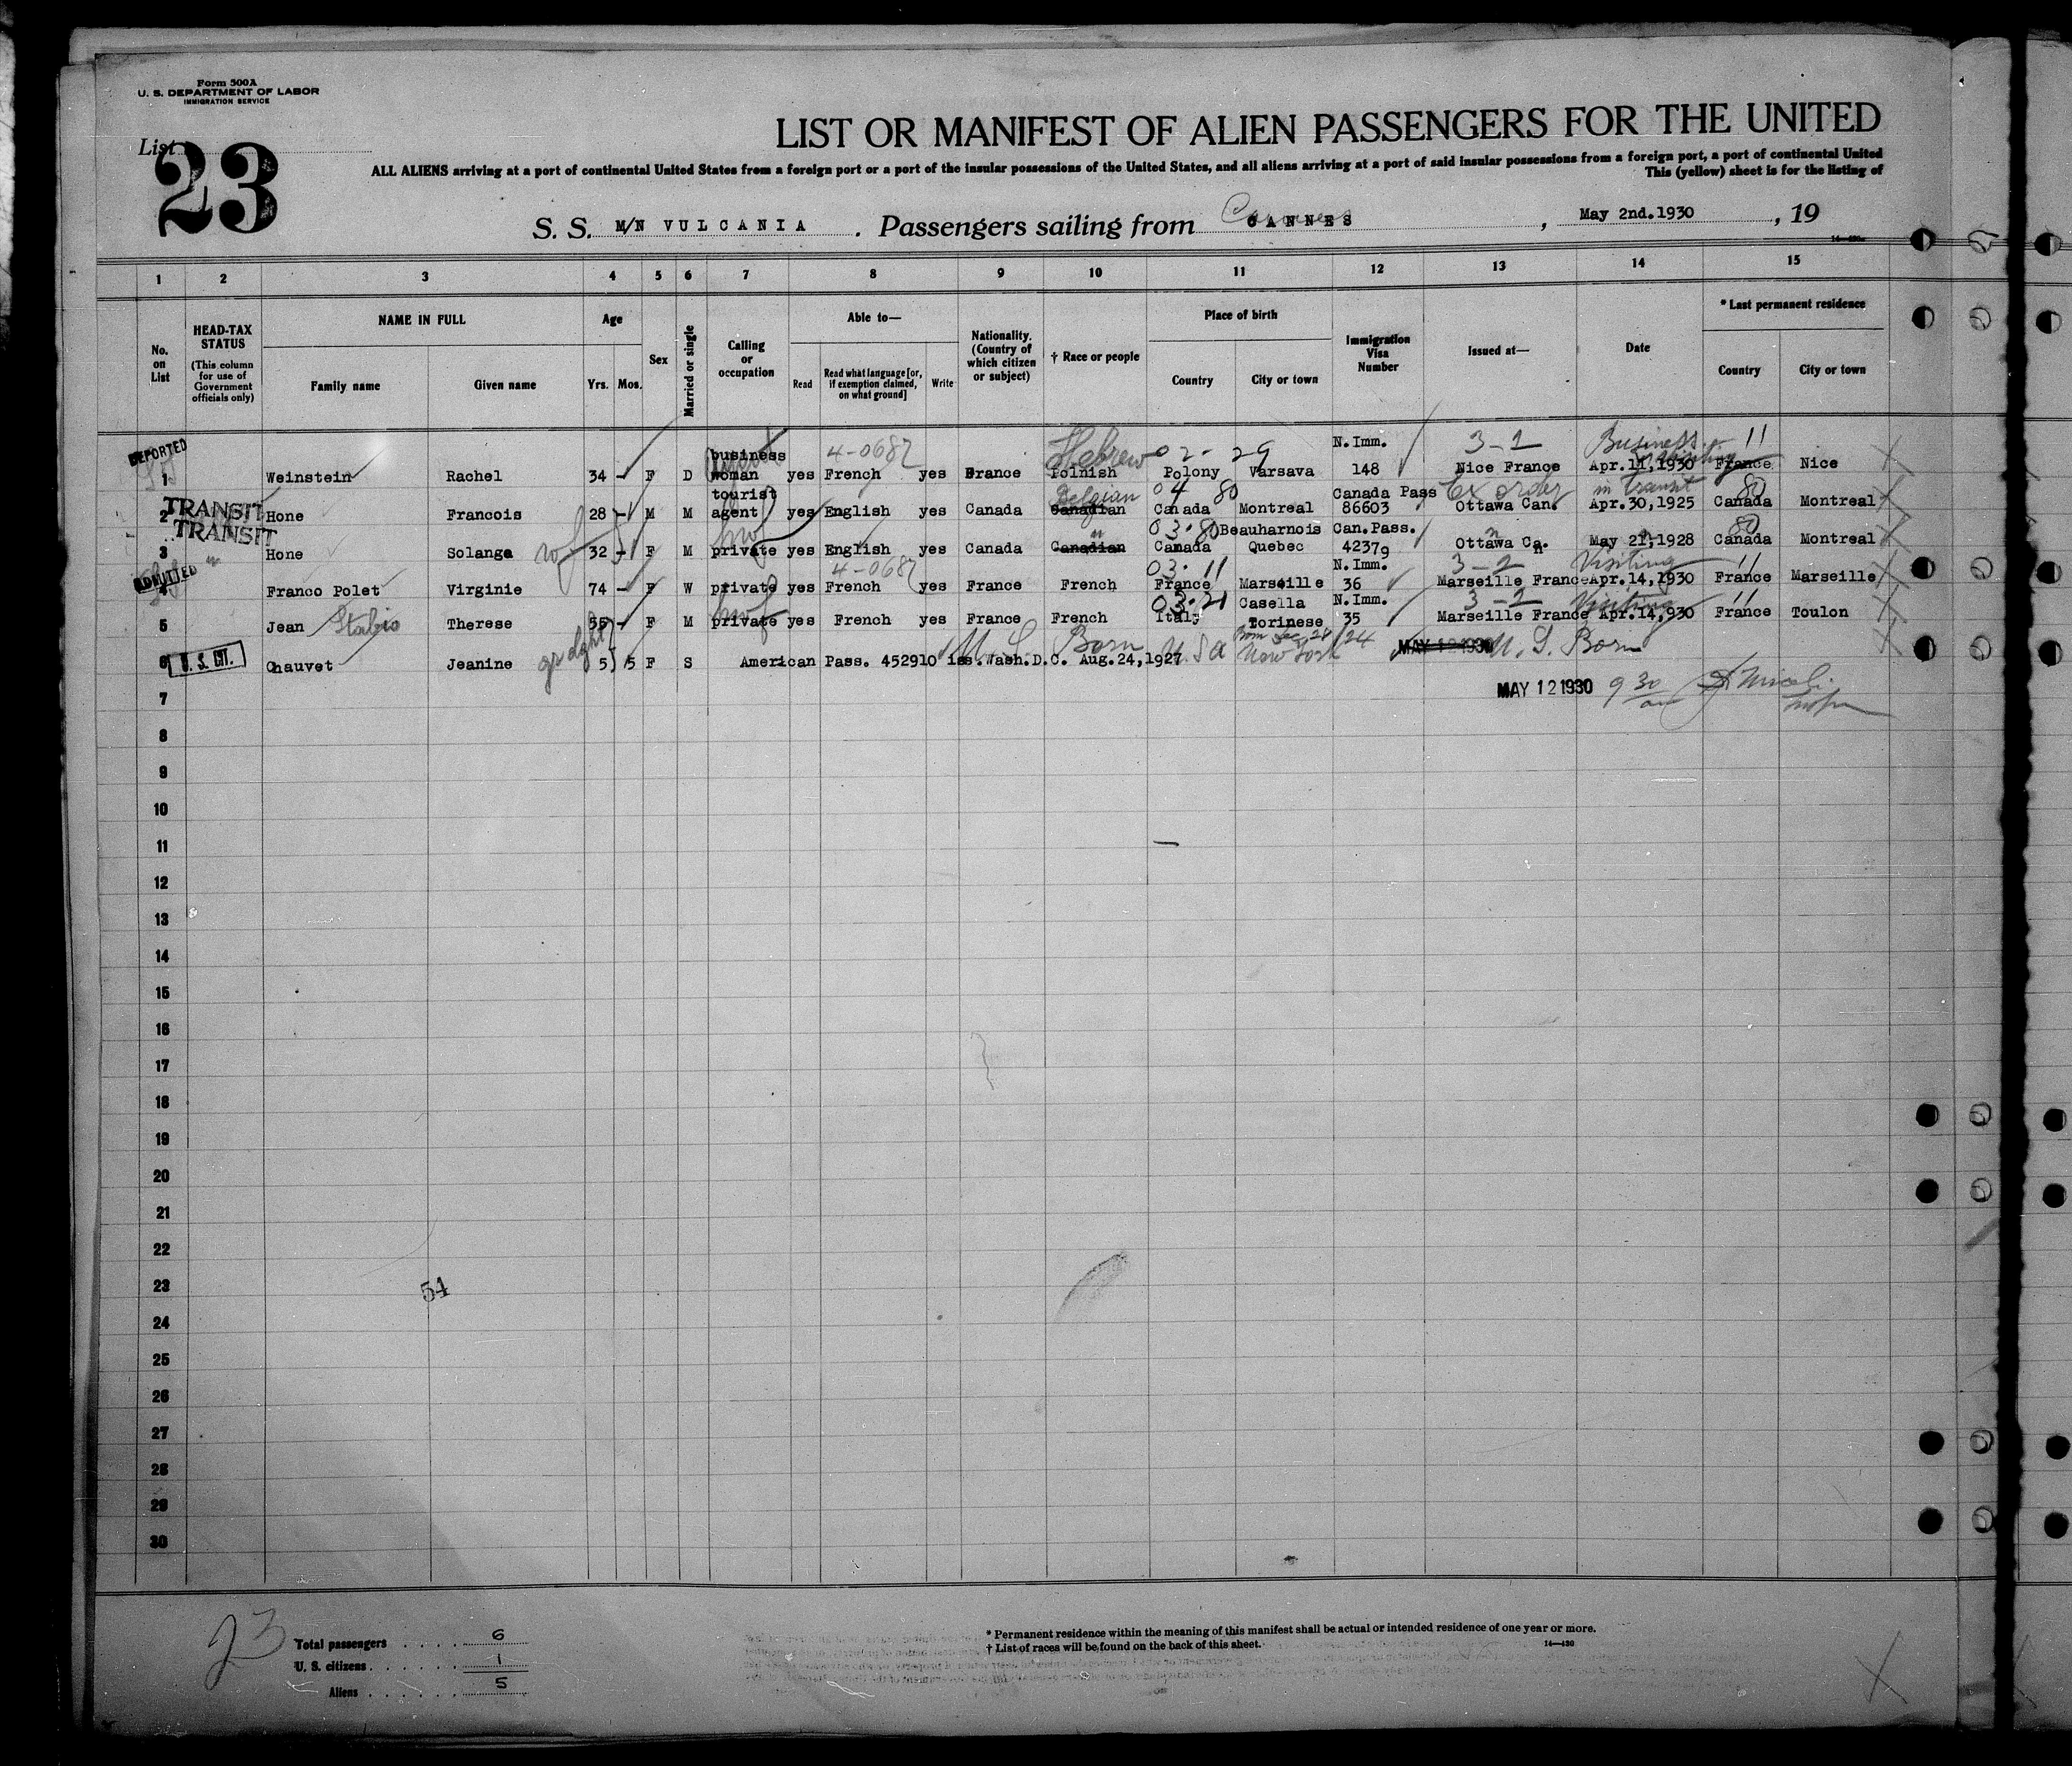 Form 500A
U. S. DEPARTMENT OF LABOR
IMMIGRATION SERVICE
List 23
LIST OR MANIFEST OF ALIEN PASSENGERS FOR THE UNITED
ALL ALIENS arriving at a port of continental United States from a foreign port or a port of the insular possessions of the United States, and all aliens arriving at a port of said insular possessions from a foreign port, a port of continental United
This (yellow) sheet is for the listing of
S. S. M/N VULCANIA . Passengers sailing from CANNES , May 2nd.1930 , 19
14—430
1 2 3 4 5 6 7 8 9 10 11 12 13 14 15
No. on List
HEAD-TAX STATUS (This column for use of Government officials only)
NAME IN FULL Family name Given name
Age Yrs. Mos.
Sex
Married or single
Calling or occupation
Able to— Read Read what language [or, if exemption claimed, on what ground] Write
Nationality. (Country of which citizen or subject)
† Race or people
Place of birth Country City or town
Immigration Visa Number
Issued at—
Date
* Last permanent residence Country City or town
DEPORTED business 4-0687 Hebrew 02-29 N. Imm. 3-2 Business 11
1 Weinstein Rachel 34 - F D woman yes French yes France Polnish Polony Varsava 148 Nice France Apr.11,1930 France Nice
TRANSIT tourist Belgian 04 80 Canada Pass Ex order in transit 80
2 Hone Francois 28 - M M agent yes English yes Canada Canadian Canada Montreal 86603 Ottawa Can. Apr.30,1925 Canada Montreal
TRANSIT hwf " 03.80 Beauharnois Can.Pass. " " 80
3 Hone Solange wf 32 - F M private yes English yes Canada Canadian Canada Quebec 4237g Ottawa Ca. May 21,1928 Canada Montreal
ADMITTED 4-0687 03.11 N. Imm. 3-2 Visiting 11
4 Franco Polet Virginie 74 - F W private yes French yes France French France Marseille 36 Marseille France Apr.14,1930 France Marseille
hwf 03.21 Casella N. Imm. 3-2 Visiting 11
5 Jean Stabio Therese 55 - F M private yes French yes France French Italy Torinese 35 Marseille France Apr.14,930 France Toulon
U. S. CIT. gr dght U. S. Born U.S.a Born Dec 28/24 New York MAY 12 1930 U. S. Born
6 Chauvet Jeanine 5 5 F S American Pass. 452910 iss.Wash.D.C. Aug.24,1927
7 MAY 12 1930 9 30 am
8
9
10
11
12
13
14
15
16
17
18
19
20
21
22
23
54
24
25
26
27
28
29
30
23
Total passengers 6
U. S. citizens 1
Aliens 5
* Permanent residence within the meaning of this manifest shall be actual or intended residence of one year or more.
† List of races will be found on the back of this sheet. 14—430